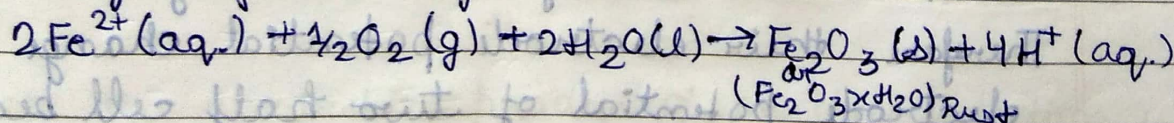 2Fe²⁺(aq.) + ½O₂(g) + 2H₂O(l) → Fe₂O₃(s) + 4H⁺(aq.)
or
(Fe₂O₃xH₂O) Rust